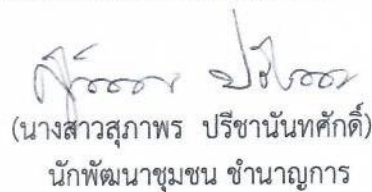 (นางสาวสุภาพร ปรีชานันทศักดิ์)
นักพัฒนาชุมชน ชำนาญการ